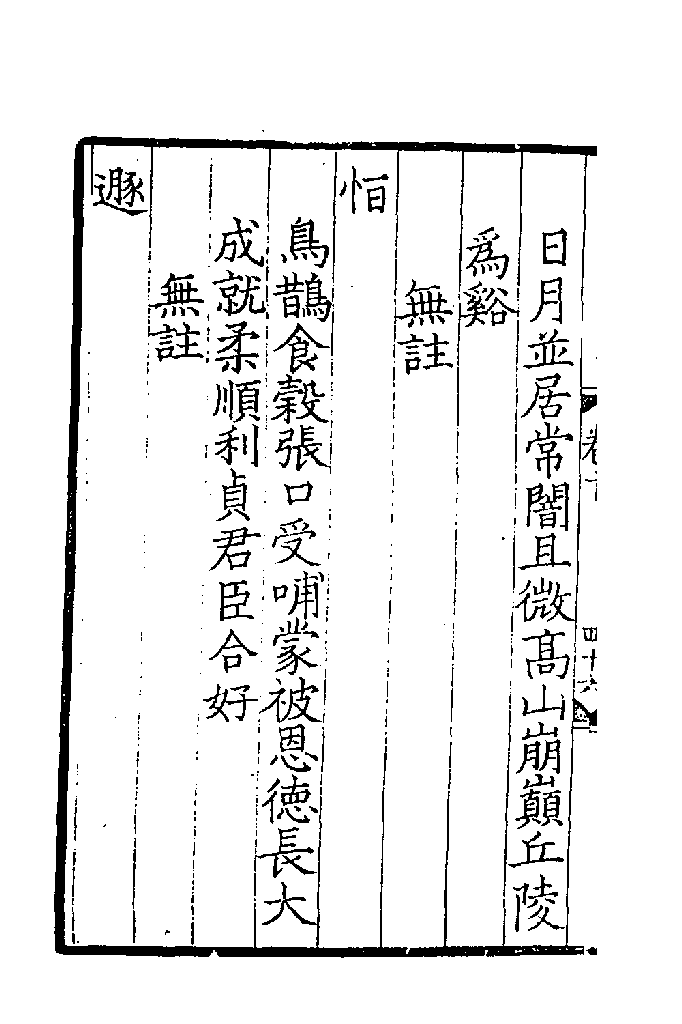 四十六
日月並居常闇且微髙山崩巔丘陵
爲谿
無註
恒
鳥鵲食穀張口受哺蒙被恩徳長大
成就柔順利貞君臣合好
無註
遯